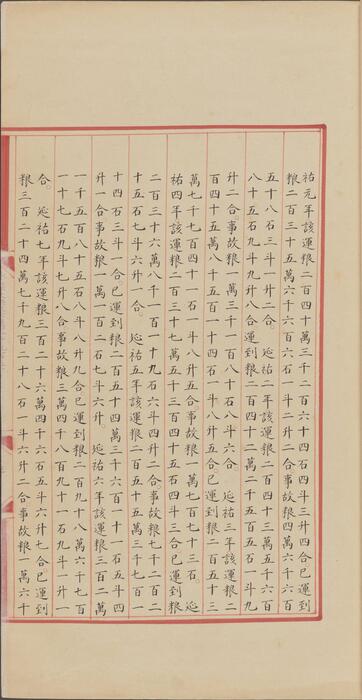 祐元年該運粮二百四十萬三千二百六十四石四斗三升四合已運到
粮二百三十五萬六千六百六石一斗二升二合事故粮四萬六千六百
五十八石三斗一升二合。 延祐二年該運粮二百四十三萬五千六百
八十五石九斗九升八合運到粮二百四十二萬二千五百五石一斗九
升二合事故粮一萬三千一百八十石八斗六合 延祐三年該運粮二
百四十五萬八千五百一十四石一斗八升五合已運到粮二百五十三
萬七千七百四十一石一斗八升五合事故粮一萬七百七十三石。 延
祐四年該運粮二百三十七萬五千三百四十五石四斗三合已運到粮
二百三十六萬八千一百一十九石六斗四升二合事故粮七千二百二
十五石七斗六升一合。 延祐五年該運粮二百五十五萬三千七百一
十四石三斗一合已運到粮二百五十四萬三千六百一十一石五斗四
升一合事故粮一萬一百二石七斗六升。 延祐六年該運粮三百二萬
一千五百八十五石八斗八升九合已運到粮二百九十八萬六千七百
一十七石九斗七升八合事故粮三萬四千八百九十一石九斗一升一
合。 延祐七年該運粮三百二十六萬四千六石五斗六升七合已運到
粮三百二十四萬七千九百二十八石一斗六升二合事故粮一萬六十